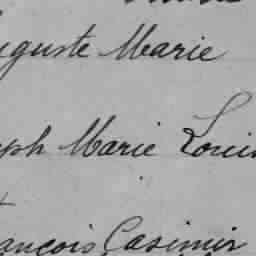 uguste Marie
ph Marie Louis
ançois Casimir